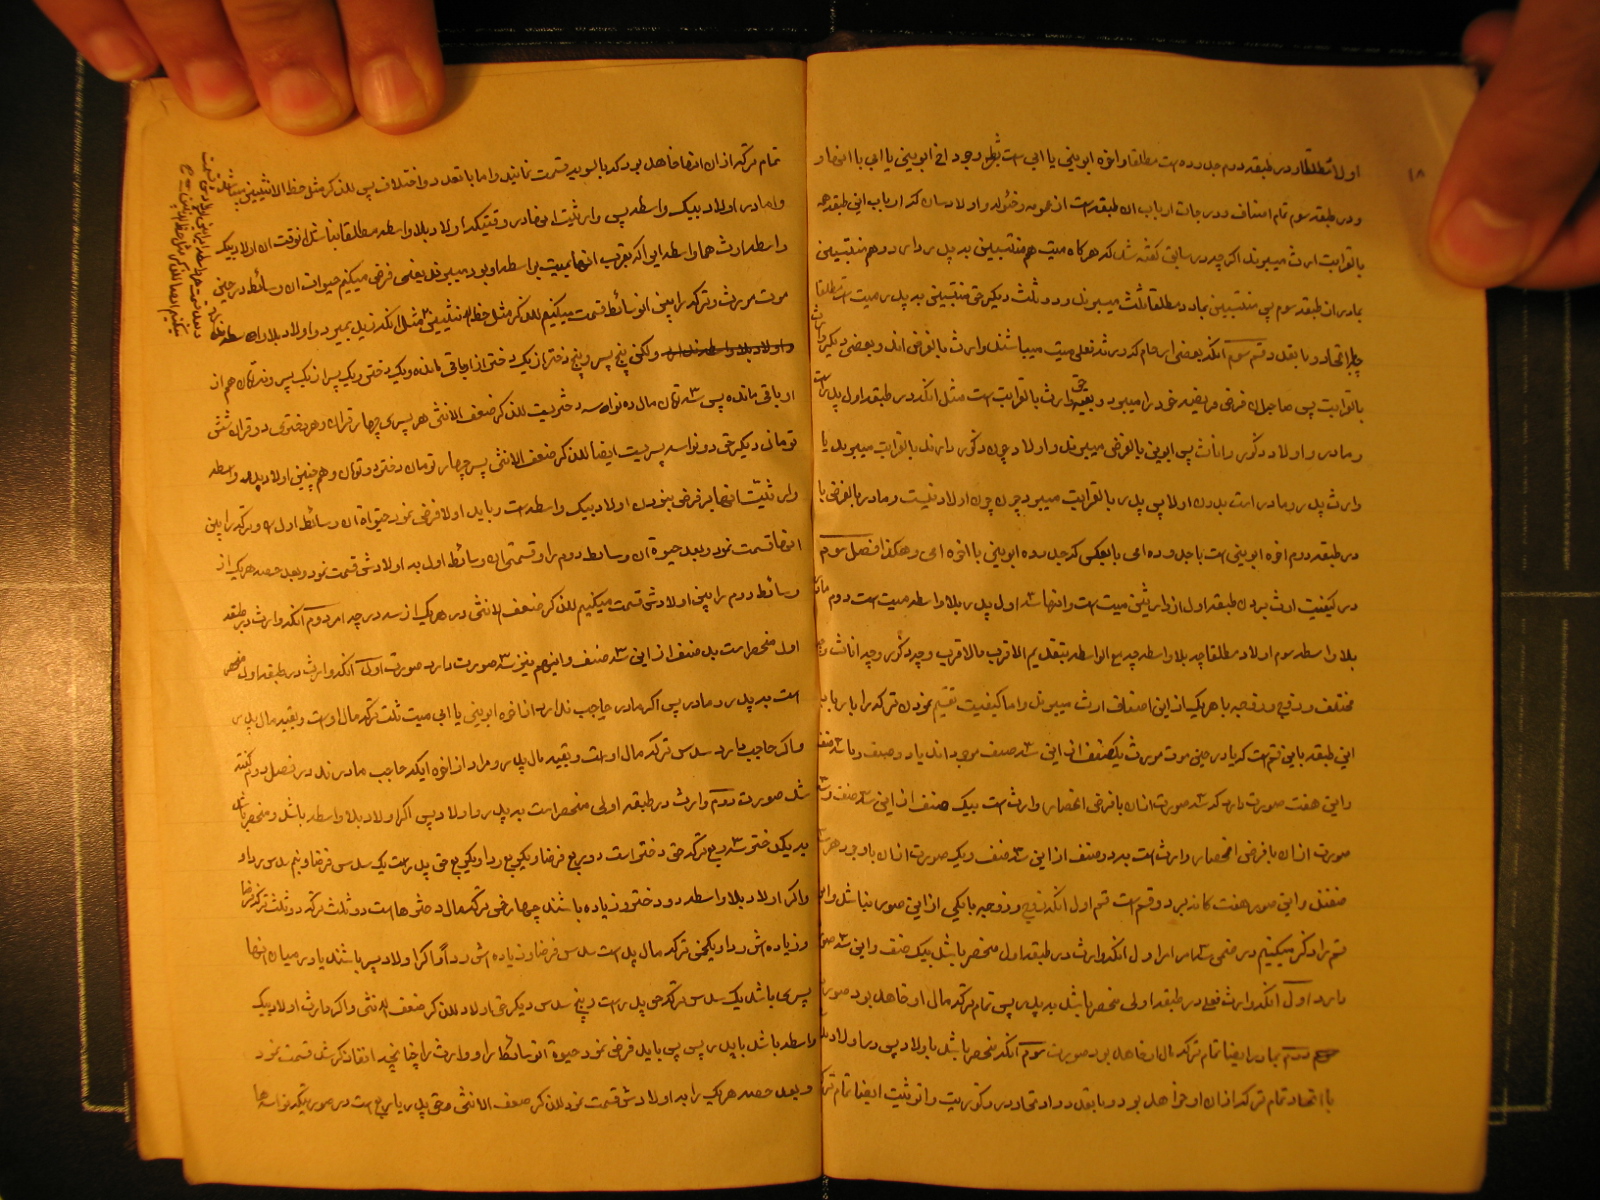 ۱۸
اولاد مطلقا و در طبقه دوم جد و جده است مطلقا و اخوه ابوینی یا ابی است بشرط وجود اخ ابوینی یا ابی با انها و
و در طبقه سوم تمام اصناف و درجات ارباب ان طبقه است از عمومه و خئوله و اولادسان که ارباب این طبقه
بالقرابت ارث میبرند اگر چه در سابق گفته شد که هر گاه میت هم منتسبین به پدر دارد و هم منتسبین
بمادر از طبقه سوم پس منتسبین بمادر مطلقا ثلث میبرند و دو ثلث دیگر حق منتسبین به پدر میت است مطلقا
اتحاد و یا تعدد قسم سوم آنکه بعضی ارحام که ورثه فعلی میت میباشند وارث بالفرض اند و بعضی دیگر
بالقرابت پس صاحبان فرض فریضه خود را میبرد و بقیه حق وارث بالقرابت است مثل آنکه در طبقه اول پدر است
و مادر و اولاد ذکور و اناث پس ابوین بالفرض میبرند و اولاد چون ذکور دارند بالقرابت میبرند یا
وارث پدر و مادر است بدون اولاد پس پدر بالقرابت میبرد چون اولاد نیست و مادر بالفرض یا
در طبقه دوم اخوه ابوینی است با جد و جده امی یا بعکس که جد و جده ابوینی با اخوه امی و هکذا فصل سوم
در کیفیت ارث بردن طبقه اول از وارثین میت است و انها سه اول پدر بلا واسطه میت است دوم مادر
بلا واسطه سوم اولاد مطلقا چه بلا واسطه چه مع الواسطه بتقدیم الاقرب فالاقرب و چه ذکور و چه اناث و چه
مختلف و زوج و زوجه با هر یک از این اصناف ارث میبرند و اما کیفیت تقسیم نمودن ترکه را بارباب
این طبقه باین قسم است که یا در حین موت مورث یک صنف از این سه صنف موجود اند یا دو صنف و یا سه صنف
و این هفت صورت دارد که سه صورت ان با فرض انحصار وارث است بیک صنف از این سه صنف و سه
صورت ان با فرض انحصار وارث است بدو صنف از این سه صنف و یک صورت ان با وجود هر سه
صنفند و این صور هفت کانه بر دو قسم است قسم اول آنکه زوج و زوجه با یکی از این صور نباشد و این
قسم را ذکر میکنیم در ضمن سه امر امر اول آنکه وارث در طبقه اول منحصر باشد بیک صنف و این سه صورت
دارد اول آنکه وارث فعلی در طبقه اولی منحصر باشد به پدر پس تمام ترکه مال او خواهد بود صورت
دوم بمادر ایضا تمام ترکه مال او خواهد بود صورت سوم آنکه منحصر باشد باولاد پس در اولاد بلا
با اتحاد تمام ترکه از ان او خواهد بود و با تعدد و اتحاد در ذکوریت و انوثیت ایضا تمام ترکه
تمام ترکه از ان انها خواهد بود که بالسویه قسمت نمائند و اما با تعدد و اختلاف پس للذکر مثل حظ الانثیین میباشد
و اما در اولاد بیک واسطه پس وارثیت انها در وقتیکه اولاد بلا واسطه مطلقا نباشد انوقت ان اولاد بیک
واسطه ارث همان واسطه ایرا که تقرب انها بمیت بواسطه او بود میبرند یعنی فرض میکنیم حیوات ان وسائط در حین
موت مورث و ترکه را بین انوسائط قسمت میکنیم للذکر مثل حظ الانثیین مثل آنکه زید بمیرد و اولاد بلا واسطه
و لکن پنج پسر و پنج دختر از یک دختر از او باقی مانده و یک دختر و یک پسر از یک پسر و نه تومان هم از
او باقی مانده پس سه تومان مال ده نواده دختریست للذکر ضعف الانثی هر پسری چهار قران و هر دختری دو قران شش
تومان دیگر حق دو نواده پسریست ایضا للذکر ضعف الانثی پسر چهار تومان دختر دو تومان و همچنین اولاد بدو واسطه
وارثیت انها بر فرض نبودن اولاد بیک واسطه است و باید اولا فرض نمود حیواة ان وسائط اول و ترکه را بین
انها قسمت نمود و بعد حیوة ان وسائط دوم را و قسمتی ان وسائط اول به اولادش قسمت نمود و بعد حصه هر یک از
وسائط دوم را بین اولادش قسمت میکنیم للذکر ضعف الانثی در هر یک از سه درجه امر دوم آنکه وارث در طبقه
اول منحصر است بدو صنف از این سه صنف و اینهم نیز سه صورت دارد صورت اول آنکه وارث در طبقه اولی منحصر
است به پدر و مادر پس اگر مادر حاجب ندارد از اخوه ابوینی یا ابی میت ثلث ترکه مال او است و بقیه مال پدر
و اگر حاجب دارد سدس ترکه مال او است و بقیه مال پدر و مراد از اخوه ایکه حاجب مادرند در فصل دوم گفته
شد صورت دوم وارث در طبقه اولی منحصر است به پدر و اولاد پس اگر اولاد بلا واسطه باشد و منحصر باشد
بیک دختر سه ربع ترکه حق دختر است دو ربع فرضا و یک ربع ردا و یک ربع حق پدر است یک سدس فرضا و نیم سدس ردا و
و اگر اولاد بلا واسطه دو دختر و زیاده باشند چهار خمس ترکه مال دخترها است دو ثلث ترکه دو ثلث ترکه فرضا
و زیاده اش ردا و یکخمس ترکه مال پدر است سدس فرضا و زیاده اش ردا و اگر اولاد پسر باشند یا در میان انها
پسری باشد یک سدس ترکه حق پدر است و پنج سدس دیگر حق اولاد للذکر ضعف الانثی و اگر وارث اولاد بیک
واسطه باشد با پدر پس پس باید فرض نمود حیوة انوسائط را و وارث را چنانچه انفا ذکر شد قسمت نمود
و بعد حصه هر یک را به اولادش قسمت نمود للذکر ضعف الانثی و حق پدر یا ربع است در صورتیکه نواده ها